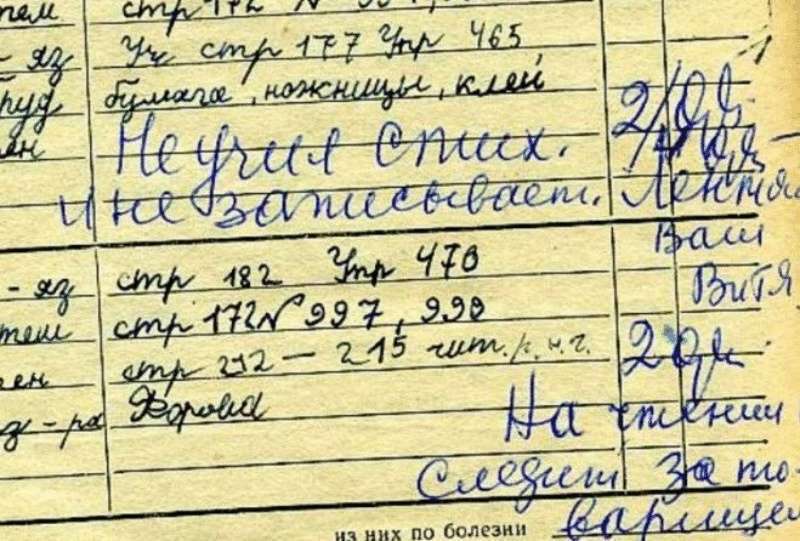 тем стр 172 №
- яз Уч стр 177 Упр 465
руд бумага, ножницы, клей
ен Не учил стих. 2/
и не записывает. Лентя
Ваш
Витя
- яз стр 182 Упр 470
тем стр 172 № 997, 998
ен стр 212 — 215 чит. 2
з - ра Форма
На чтении
следит за то-
варищем
из них по болезни